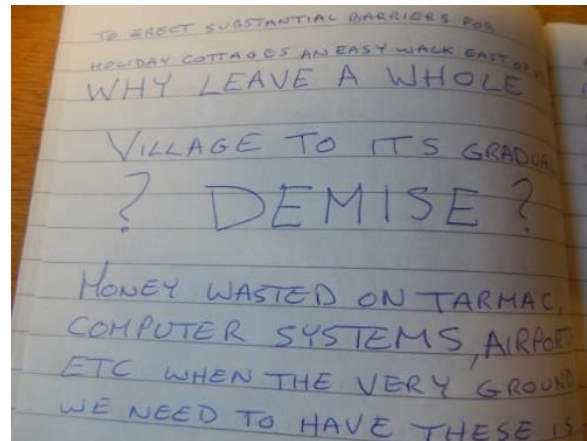 TO ERECT SUBSTANTIAL BARRIERS FOR
HOLIDAY COTTAGES AN EASY WALK EAST OF
WHY LEAVE A WHOLE
VILLAGE TO ITS GRADUAL
? DEMISE ?
MONEY WASTED ON TARMAC,
COMPUTER SYSTEMS, AIRPORTS
ETC WHEN THE VERY GROUND
WE NEED TO HAVE THESE IS